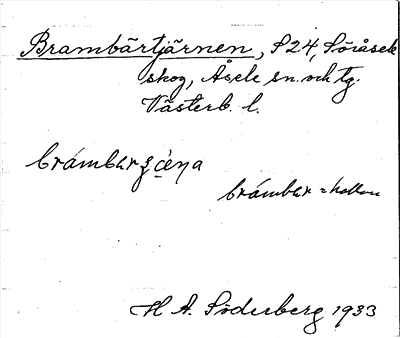 Brambärtjärnen, S24, Söråsele
skog, Åsele sn. och tg.
Västerb. l.
brámbær = hallon
H A. Söderberg 1933